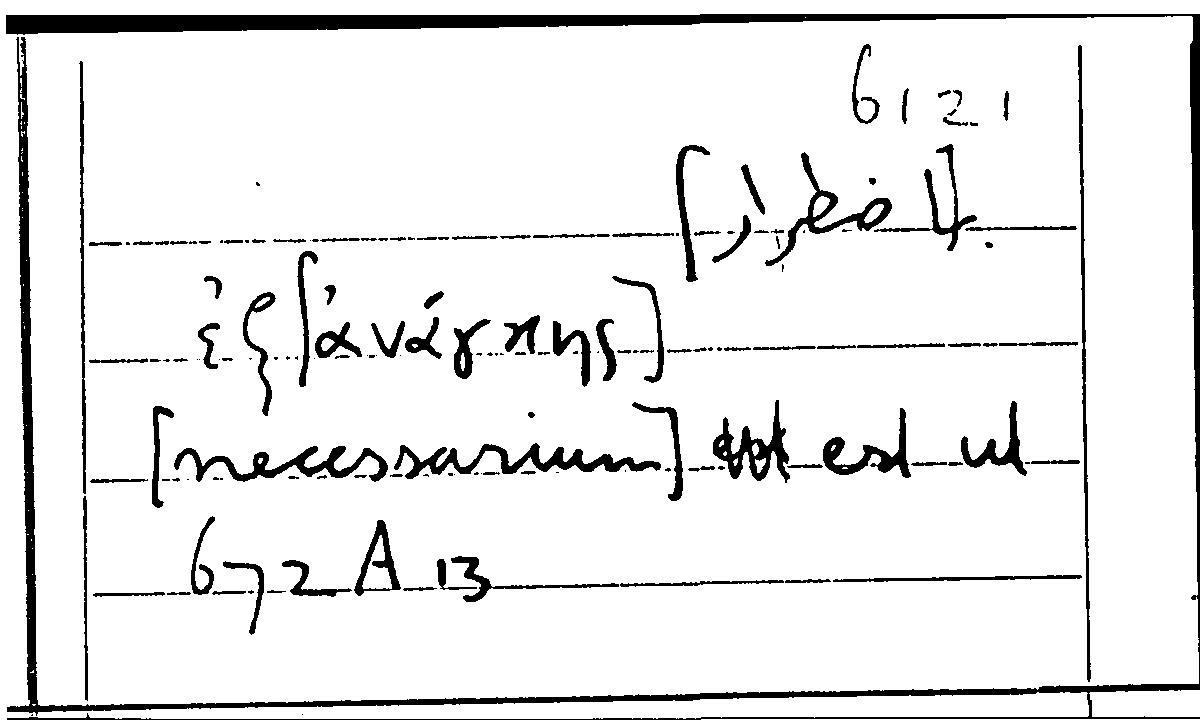 6121
ἐξ [ἀνάγκης]
[necessarium] est ut
672 A 13